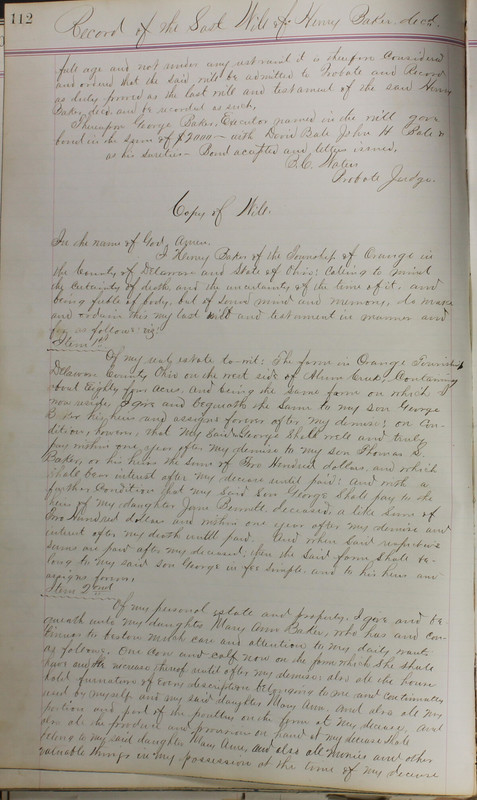 112
Record of the Last Will of Henry Baker dec'd.
full age and not under any restraint it is therefore Considered
and ordered that the said will be admitted to Probate and Record
as duly proved as the last will and testament of the said Henry
Baker, dec'd and be recorded as such.
Thereupon George Baker, Executor named in the will gave
bond in the Sum of $2000 — with David Bale John H Bale &
as his sureties — Bond accepted and letters issued.
B.C. Waters
Probate Judge.
Copy of Will.
In the name of God, Amen.
I Henry Baker of the Township of Orange in
the County of Delaware and State of Ohio: Calling to mind
the Certainty of death and the uncertainty of the time of it, and
being feeble of body, but of sound mind and memory, do make
and ordain this my last will and testament in manner and
form as follows: viz:
Item 1st
Of my real estate to wit: The farm in Orange Township
Delaware County, Ohio on the west side of Alum Creek, Containing
about Eighty four acres. And being the same farm on which I
now reside, I give and bequeath the same to my son George
B. to his heirs and assigns forever after my demise; on Con-
dition, however, that my said son George Shall well and truly
pay within one year after my demise to my son Thomas S.
Baker, or his heirs the sum of Two Hundred dollars, and which
shall bear interest after my decease until paid: And with a
further Condition that my said Son George shall pay to the
heirs of my daughter Jane Bennett, deceased, a like Sum of
Two Hundred dollars and within one year after my demise and
interest after my death untill paid. And when said respective
sums are paid after my decease, then the said farm shall be-
long to my said son George in fee simple, and to his heirs and
assigns forever,
Item 2nd
Of my personal estate and property, I give and be
queath unto my daughter Mary Ann Baker, who has and con-
tinues to bestow much care and attention to my daily wants
as follows: One Cow and calf now on the farm which she shall
have and the increase thereof untill after my demise: also all the house
hold furniture of every description belonging to me and Continually
used by myself and my said daughter Mary Ann. And also all my
portion and part of the poultry on the farm at my decease, and
also all the produce and provision on hand at my decease shall
belong to my said daughter Mary Ann, and also all monies and other
valuable things in my possession at the time of my decease